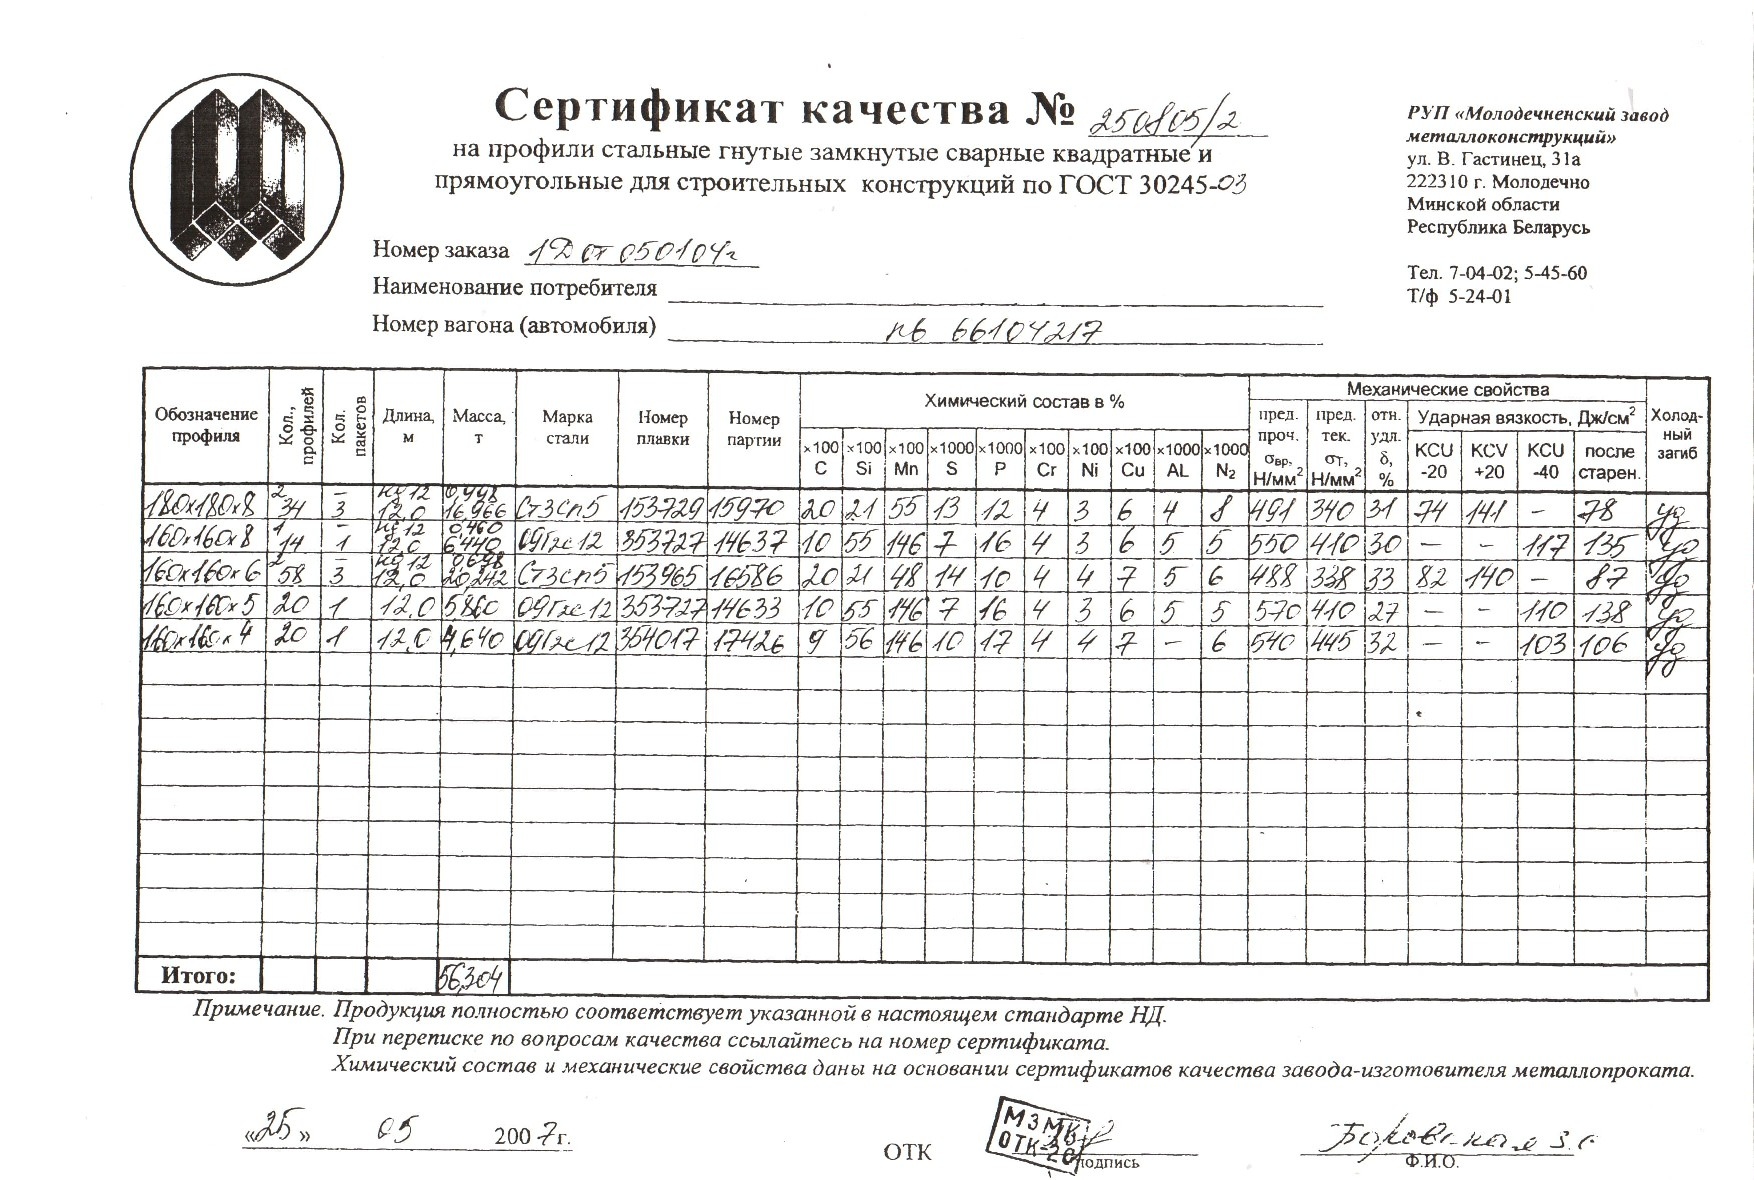 Сертификат качества № 250805/2
на профили стальные гнутые замкнутые сварные квадратные и
прямоугольные для строительных конструкций по ГОСТ 30245-03
РУП «Молодечненский завод
металлоконструкций»
ул. В. Гастинец, 31а
222310 г. Молодечно
Минской области
Республика Беларусь
Тел. 7-04-02; 5-45-60
Т/ф 5-24-01
Номер заказа 1Д от 050104г
Наименование потребителя
Номер вагона (автомобиля) пв 66104217
Обозначение профиля Кол., профилей Кол. пакетов Длина, м Масса, т Марка стали Номер плавки Номер партии Химический состав в % Механические свойства Холодный загиб
×100 C ×100 Si ×100 Mn ×1000 S ×1000 P ×100 Cr ×100 Ni ×100 Cu ×1000 AL ×1000 N₂ пред. проч. σвр, Н/мм² пред. тек. σт, Н/мм² отн. удл. δ, % Ударная вязкость, Дж/см²
KCU -20 KCV +20 KCU -40 после старен.
2 – нд 12 0,998
180х180х8 34 3 12,0 16,966 Ст3сп5 153729 15970 20 21 55 13 12 4 3 6 4 8 491 340 31 74 141 – 78 уд
1 – нд 12 0,460
160х160х8 14 1 12,0 6,440 09Г2с12 353727 14637 10 55 146 7 16 4 3 6 5 5 550 410 30 – – 117 135 уд
2 – нд 12 0,698
160х160х6 58 3 12,0 20,242 Ст3сп5 153965 16586 20 21 48 14 10 4 4 7 5 6 488 338 33 82 140 – 87 уд
160х160х5 20 1 12,0 5,860 09Г2с12 353727 14633 10 55 146 7 16 4 3 6 5 5 570 410 27 – – 110 138 уд
160х160х4 20 1 12,0 4,640 09Г2с12 354017 17426 9 56 146 10 17 4 4 7 – 6 540 445 32 – – 103 106 уд
Итого: 56,304
Примечание. Продукция полностью соответствует указанной в настоящем стандарте НД.
При переписке по вопросам качества ссылайтесь на номер сертификата.
Химический состав и механические свойства даны на основании сертификатов качества завода-изготовителя металлопроката.
«25» 05 2007г.
ОТК
МЗМК
ОТК-20
подпись
Ф.И.О.